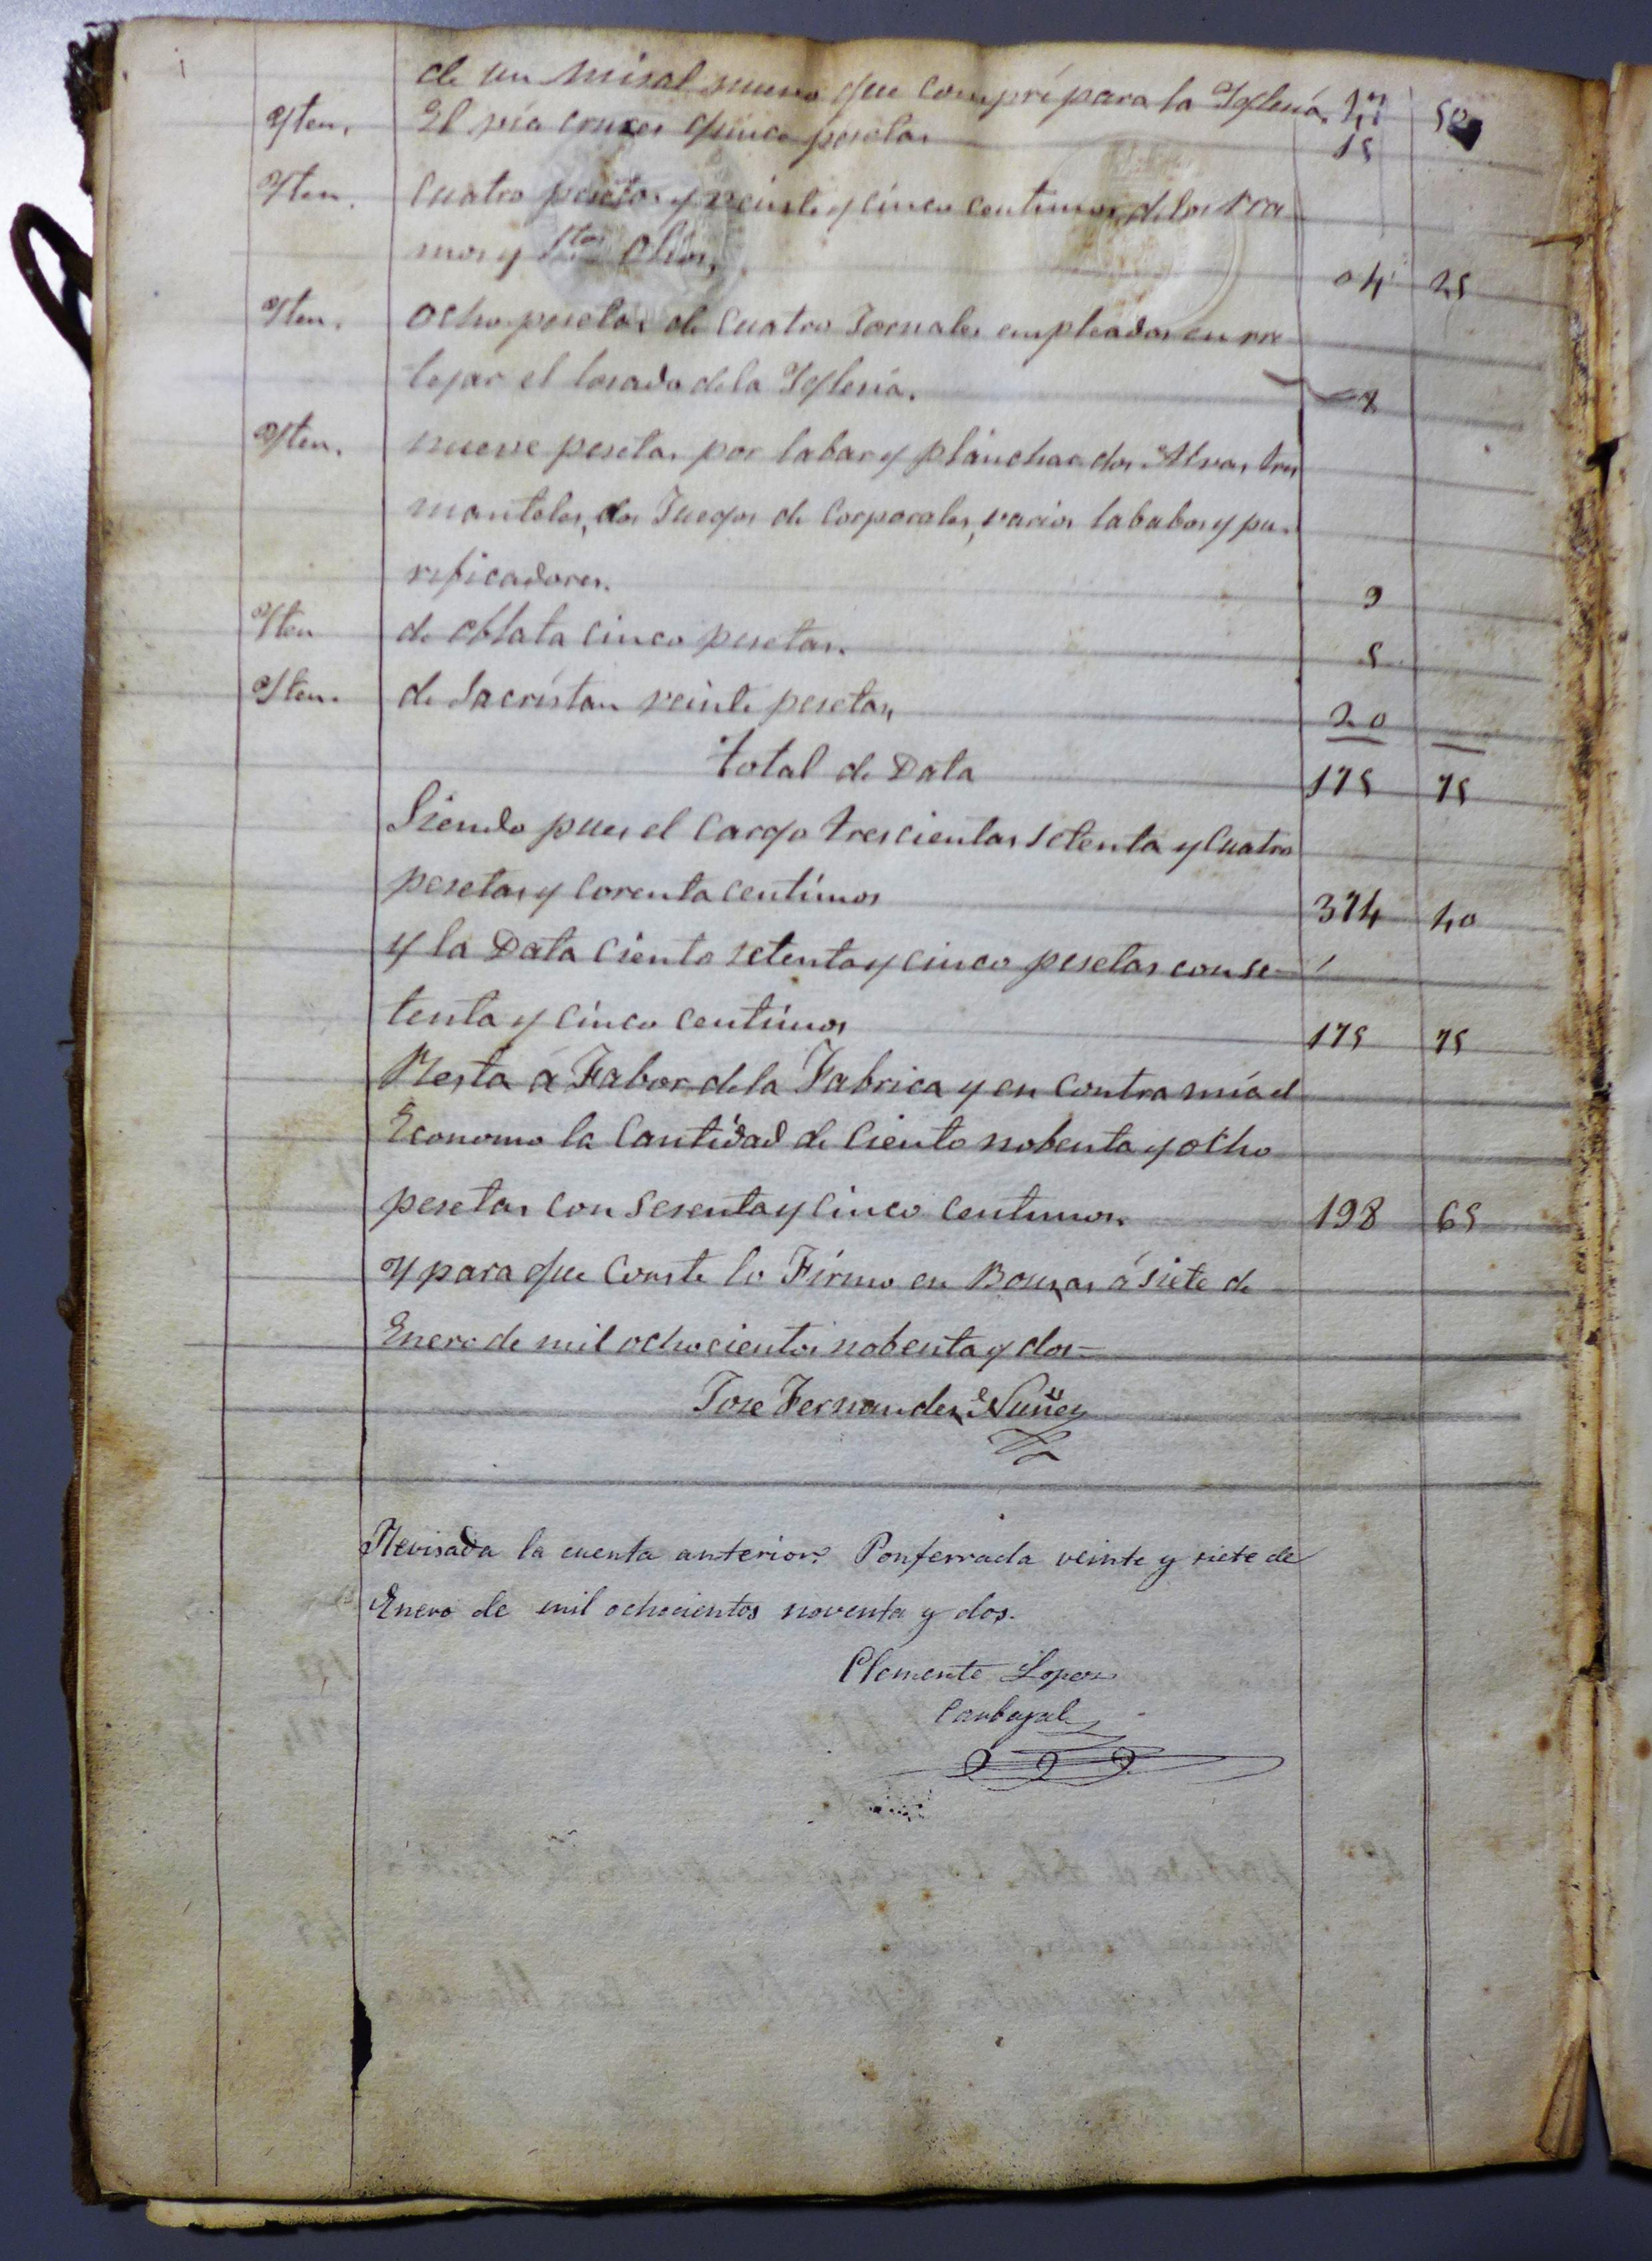 de un misal nuevo que compré para la Yglesia. 50
Yten. El vía cruces quince pesetas 15
Yten. Cuatro pesetas y veinte y cinco centimos de los Rra
mos y Stos Olios, 04 25
Yten. Ocho pesetas de Cuatro Jornales empleados en rre
tejar el losado dela Yglesia. 8
Yten. nueve pesetas por labar y planchar dos Alvas, tres
manteles, dos Juegos de Corporales, varios lababos y pu-
rificadores. 9
Yten de oblata cinco pesetas. 5
Yten. de Sacristan veinte pesetas, 20
total de Data 175 75
Siendo pues el Cargo trescientas setenta y Cuatro
pesetas y corenta centimos 374 40
y la Data Ciento setenta y cinco pesetas con se-
tenta y cinco centimos 175 75
Resta á Fabor dela Fabrica y en contra mía el
Economo la Cantidad de Ciento nobenta y ocho
pesetas con sesenta y cinco centimos. 198 65
Y para que Conste lo Firmo en Bouzas á siete de
Enero de mil ochocientos nobenta y dos=
Jose Fernandez Nuñez
Revisada la cuenta anterior. Ponferrada veinte y siete de
Enero de mil ochocientos noventa y dos.
Clemente Lopez
Carbajal